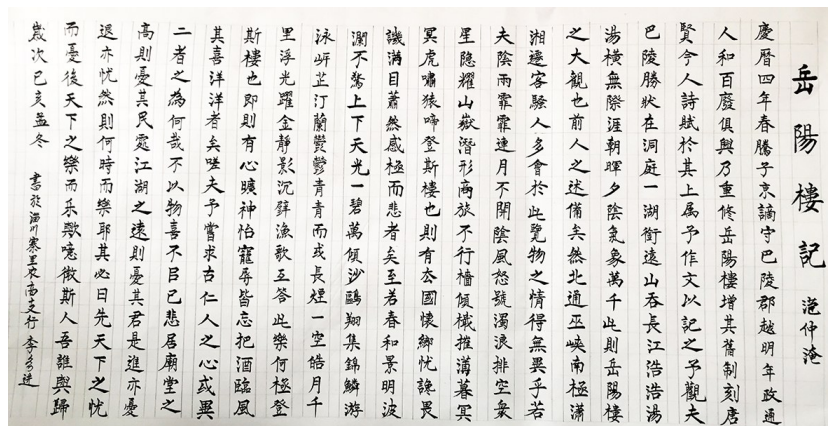 岳陽樓記 范仲淹
慶曆四年春騰子京謫守巴陵郡越明年政通
人和百廢俱興乃重修岳陽樓增其舊制刻唐
賢今人詩賦於其上属予作文以記之予觀夫
巴陵勝状在洞庭一湖銜遠山吞長江浩浩湯
湯橫無際涯朝暉夕陰氣象萬千此則岳陽樓
之大觀也前人之述備矣然北通巫峽南極瀟
湘遷客騷人多會於此覽物之情得無異乎若
夫陰雨霏霏連月不開陰風怒號濁浪排空衆
星隐耀山嶽潛形商旅不行檣傾檝摧溝暮冥
冥虎嘯猿啼登斯樓也則有去國懷鄉忧讒畏
譏滿目蕭然感極而悲者矣至若春和景明波
瀾不驚上下天光一碧萬傾沙鷗翔集錦鱗游
泳岍芷汀蘭鬱鬱青青而或長煙一空皓月千
里浮光躍金静影沉璧漁歌互答此樂何極登
斯樓也即則有心曠神怡寵辱皆忘把酒臨風
其喜洋洋者矣嗟夫予嘗求古仁人之心或異
二者之為何哉不以物喜不以己悲居廟堂之
高則憂其民處江湖之遠則憂其君是進亦憂
退亦忧然則何時而樂耶其必曰先天下之忧
而憂後天下之樂而乐歟噫微斯人吾誰與歸
歲次己亥孟冬 書於淄川寨里农商支行 李